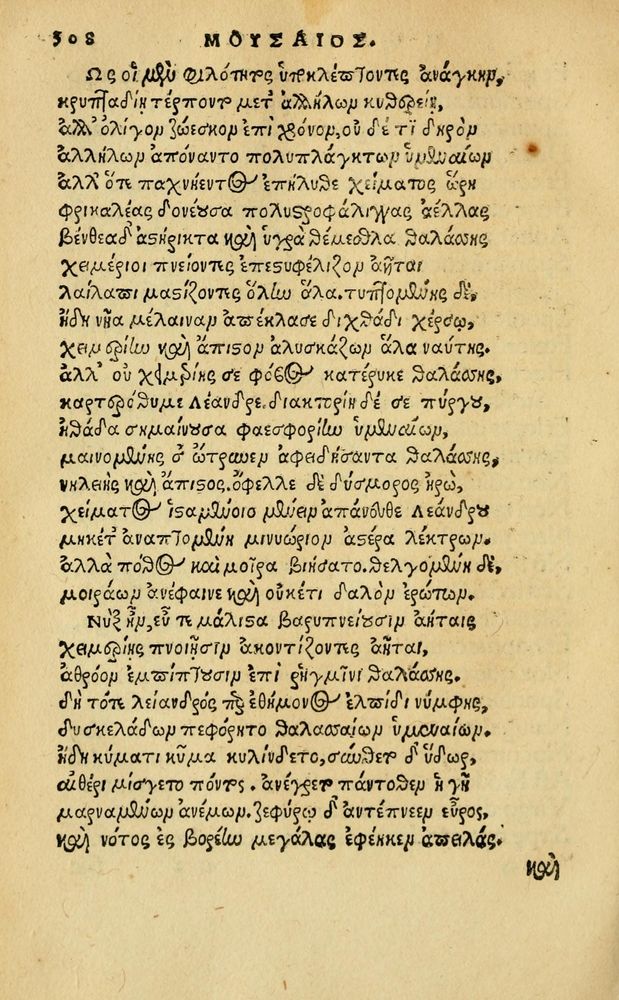 308 ΜΟΥΣΑΙΟΣ.
Ὣς οἱ μὲν φιλότητος ὑποκλέπτοντες ἀνάγκην,
κρυπταδίῃ τέρποντο μετ' ἀλλήλων κυθερείῃ,
ἀλλ' ὀλίγον ζώεσκον ἐπὶ χρόνον, οὐ δ' ἔτι δηρὸν
ἀλλήλων ἀπόναντο πολυπλάγκτων ὑμεναίων
ἀλλ' ὅτε παχνήεντος ἐπήλυθε χείματος ὥρη
φρικαλέας δονέουσα πολυστροφάλιγγας ἀέλλας
βένθεα δ' ἀστήρικτα καὶ ὑγρὰ θέμεθλα θαλάσσης
χειμέριοι πνείοντες ἐπεστυφέλιζον ἀῆται
λαίλαπι μαστίζοντες ὅλην ἅλα. τυπτομένης δὲ,
ἤδη νῆα μέλαιναν ἀπέκλασε διχθάδι χέρσῳ,
χειμερίην καὶ ἄπιστον ἀλυσκάζων ἅλα ναύτης.
ἀλλ' οὐ χειμερίης σε φόβος κατέρυκε θαλάσσης,
καρτερόθυμε Λέανδρε. διακτορίη δέ σε πύργου,
ἠθάδα σημαίνουσα φαεσφορίην ὑμεναίων,
μαινομένης σ' ὤτρυνεν ἀφειδήσαντα θαλάσσης,
νηλειὴς καὶ ἄπιστος. ὄφελλε δὲ δύσμορος ἡρὼ,
χείματος ἱσταμένοιο μένειν ἀπάνευθε Λεάνδρου
μηκέτ' ἀναπτομένη μινυώριον ἀστέρα λέκτρων.
ἀλλὰ πόθος καὶ μοῖρα βιήσατο. θελγομένη δὲ,
μοιράων ἀνέφαινε καὶ οὐκέτι δαλὸν ἐρώτων.
Νὺξ ἦν, εὖ τε μάλιστα βαρυπνείουσιν ἀήταις
χειμερίης πνοιῇσιν ἀκοντίζοντες ἀῆται,
ἀθρόον ἐμπίπτουσιν ἐπὶ ῥηγμῖνι θαλάσσης.
δὴ τότε λείανδρός περ ἐθήμονος ἐλπίδι νύμφης,
δυσκελάδων πεφόρητο θαλασσαίων ὑμεναίων.
ἤδη κύματι κῦμα κυλίνδετο, σύνθετο δ' ὕδωρ,
αἰθέρι μίσγετο πόντος. ἀνέγρετο πάντοθεν ἡ γῆ
μαρναμένων ἀνέμων. ζεφύρῳ δ' ἀντέπνεεν εὖρος,
καὶ νότος ἐς βορέην μεγάλας ἐφέηκεν ἀπειλάς.
καὶ